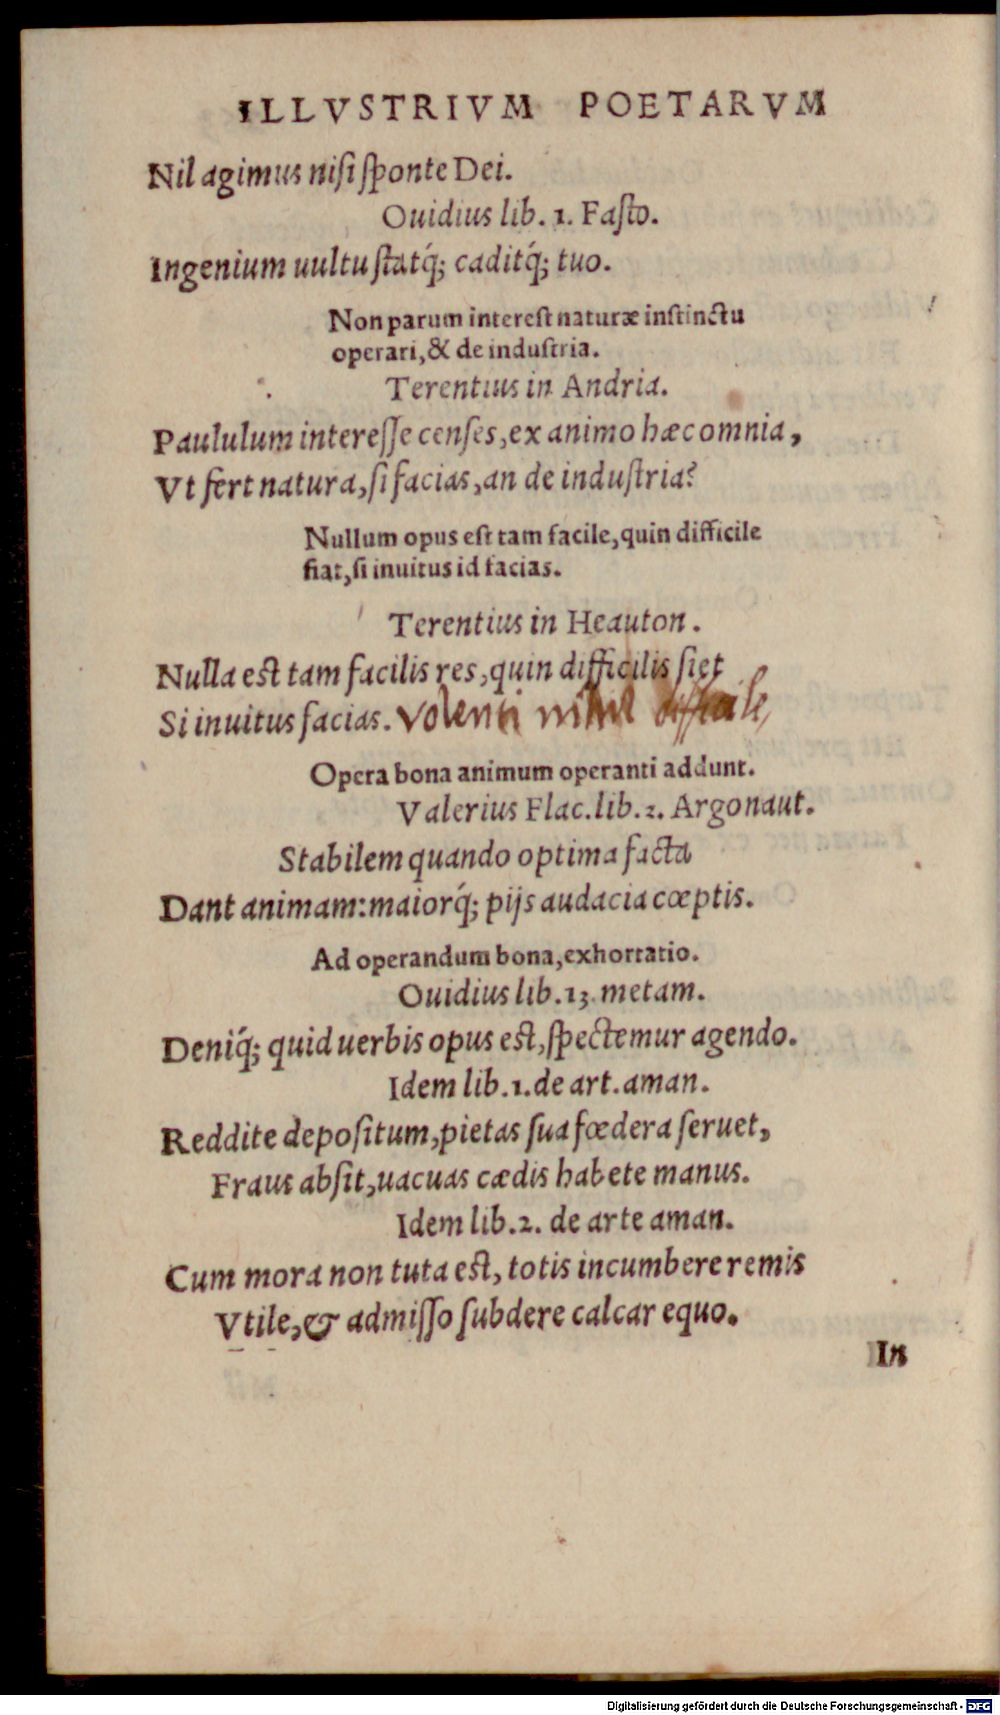 ILLVSTRIVM POETARVM
Nil agimus nisi sponte Dei.
Ouidius lib. 1. Fasto.
Ingenium uultu statq́; caditq́; tuo.
Non parum interest naturæ instinctu
operari, & de industria.
Terentius in Andria.
Paululum interesse censes, ex animo hæc omnia,
Vt fert natura, si facias, an de industria?
Nullum opus est tam facile, quin difficile
fiat, si inuitus id facias.
Terentius in Heauton.
Nulla est tam facilis res, quin difficilis siet
Si inuitus facias. volenti nihil difficile,
Opera bona animum operanti addunt.
Valerius Flac. lib. 2. Argonaut.
Stabilem quando optima facta
Dant animam: maiorq́; pijs audacia cœptis.
Ad operandum bona, exhortatio.
Ouidius lib. 13. metam.
Deniq́; quid uerbis opus est, spectemur agendo.
Idem lib. 1. de art. aman.
Reddite depositum, pietas sua fœdera seruet,
Fraus absit, uacuas cædis habete manus.
Idem lib. 2. de arte aman.
Cum mora non tuta est, totis incumbere remis
Vtile, & admisso subdere calcar equo.
In
Digitalisierung gefördert durch die Deutsche Forschungsgemeinschaft - DFG